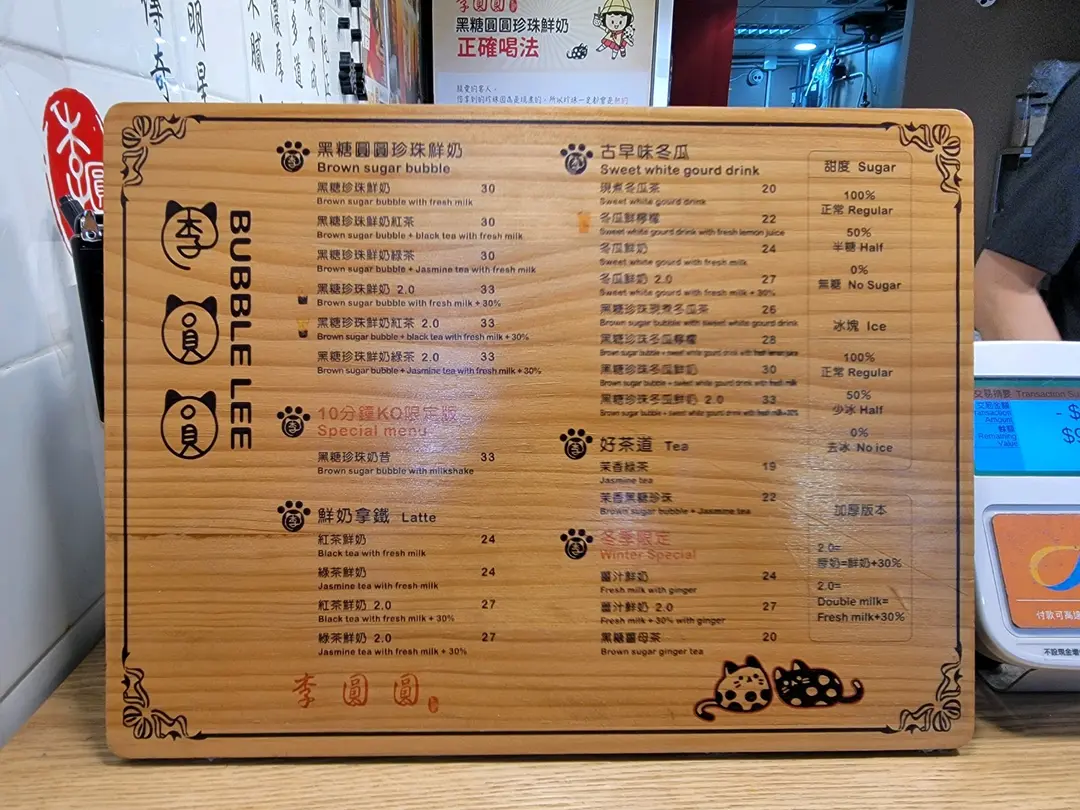 李圓圓
黑糖圓圓珍珠鮮奶
正確喝法
親愛的客人,
李圓圓
BUBBLE LEE
黑糖圓圓珍珠鮮奶
Brown sugar bubble
黑糖珍珠鮮奶 30
Brown sugar bubble with fresh milk
黑糖珍珠鮮奶紅茶 30
Brown sugar bubble + black tea with fresh milk
黑糖珍珠鮮奶綠茶 30
Brown sugar bubble + Jasmine tea with fresh milk
黑糖珍珠鮮奶 2.0 33
Brown sugar bubble with fresh milk + 30%
黑糖珍珠鮮奶紅茶 2.0 33
Brown sugar bubble + black tea with fresh milk + 30%
黑糖珍珠鮮奶綠茶 2.0 33
Brown sugar bubble + Jasmine tea with fresh milk + 30%
10分鐘KO限定版
Special menu
黑糖珍珠奶昔 33
Brown sugar bubble with milkshake
鮮奶拿鐵 Latte
紅茶鮮奶 24
Black tea with fresh milk
綠茶鮮奶 24
Jasmine tea with fresh milk
紅茶鮮奶 2.0 27
Black tea with fresh milk + 30%
綠茶鮮奶 2.0 27
Jasmine tea with fresh milk + 30%
李圓圓
古早味冬瓜
Sweet white gourd drink
現煮冬瓜茶 20
Sweet white gourd drink
冬瓜鮮檸檬 22
Sweet white gourd drink with fresh lemon juice
冬瓜鮮奶 24
Sweet white gourd with fresh milk
冬瓜鮮奶 2.0 27
Sweet white gourd with fresh milk + 30%
黑糖珍珠現煮冬瓜茶 26
Brown sugar bubble with sweet white gourd drink
黑糖珍珠冬瓜檸檬 28
Brown sugar bubble + sweet white gourd drink with fresh lemon juice
黑糖珍珠冬瓜鮮奶 30
Brown sugar bubble + sweet white gourd drink with fresh milk
黑糖珍珠冬瓜鮮奶 2.0 33
Brown sugar bubble + sweet white gourd drink with fresh milk+30%
好茶道 Tea
茉香綠茶 19
Jasmine tea
茉香黑糖珍珠 22
Brown sugar bubble + Jasmine tea
冬季限定
Winter Special
薑汁鮮奶 24
Fresh milk with ginger
薑汁鮮奶 2.0 27
Fresh milk + 30% with ginger
黑糖薑母茶 20
Brown sugar ginger tea
甜度 Sugar
100%
正常 Regular
50%
半糖 Half
0%
無糖 No Sugar
冰塊 Ice
100%
正常 Regular
50%
少冰 Half
0%
去冰 No ice
加厚版本
2.0=
厚奶=鮮奶+30%
2.0=
Double milk=
Fresh milk+30%
交易摘要 Transaction Su
交易金額
Transaction
Amount
餘額
Remaining
Value